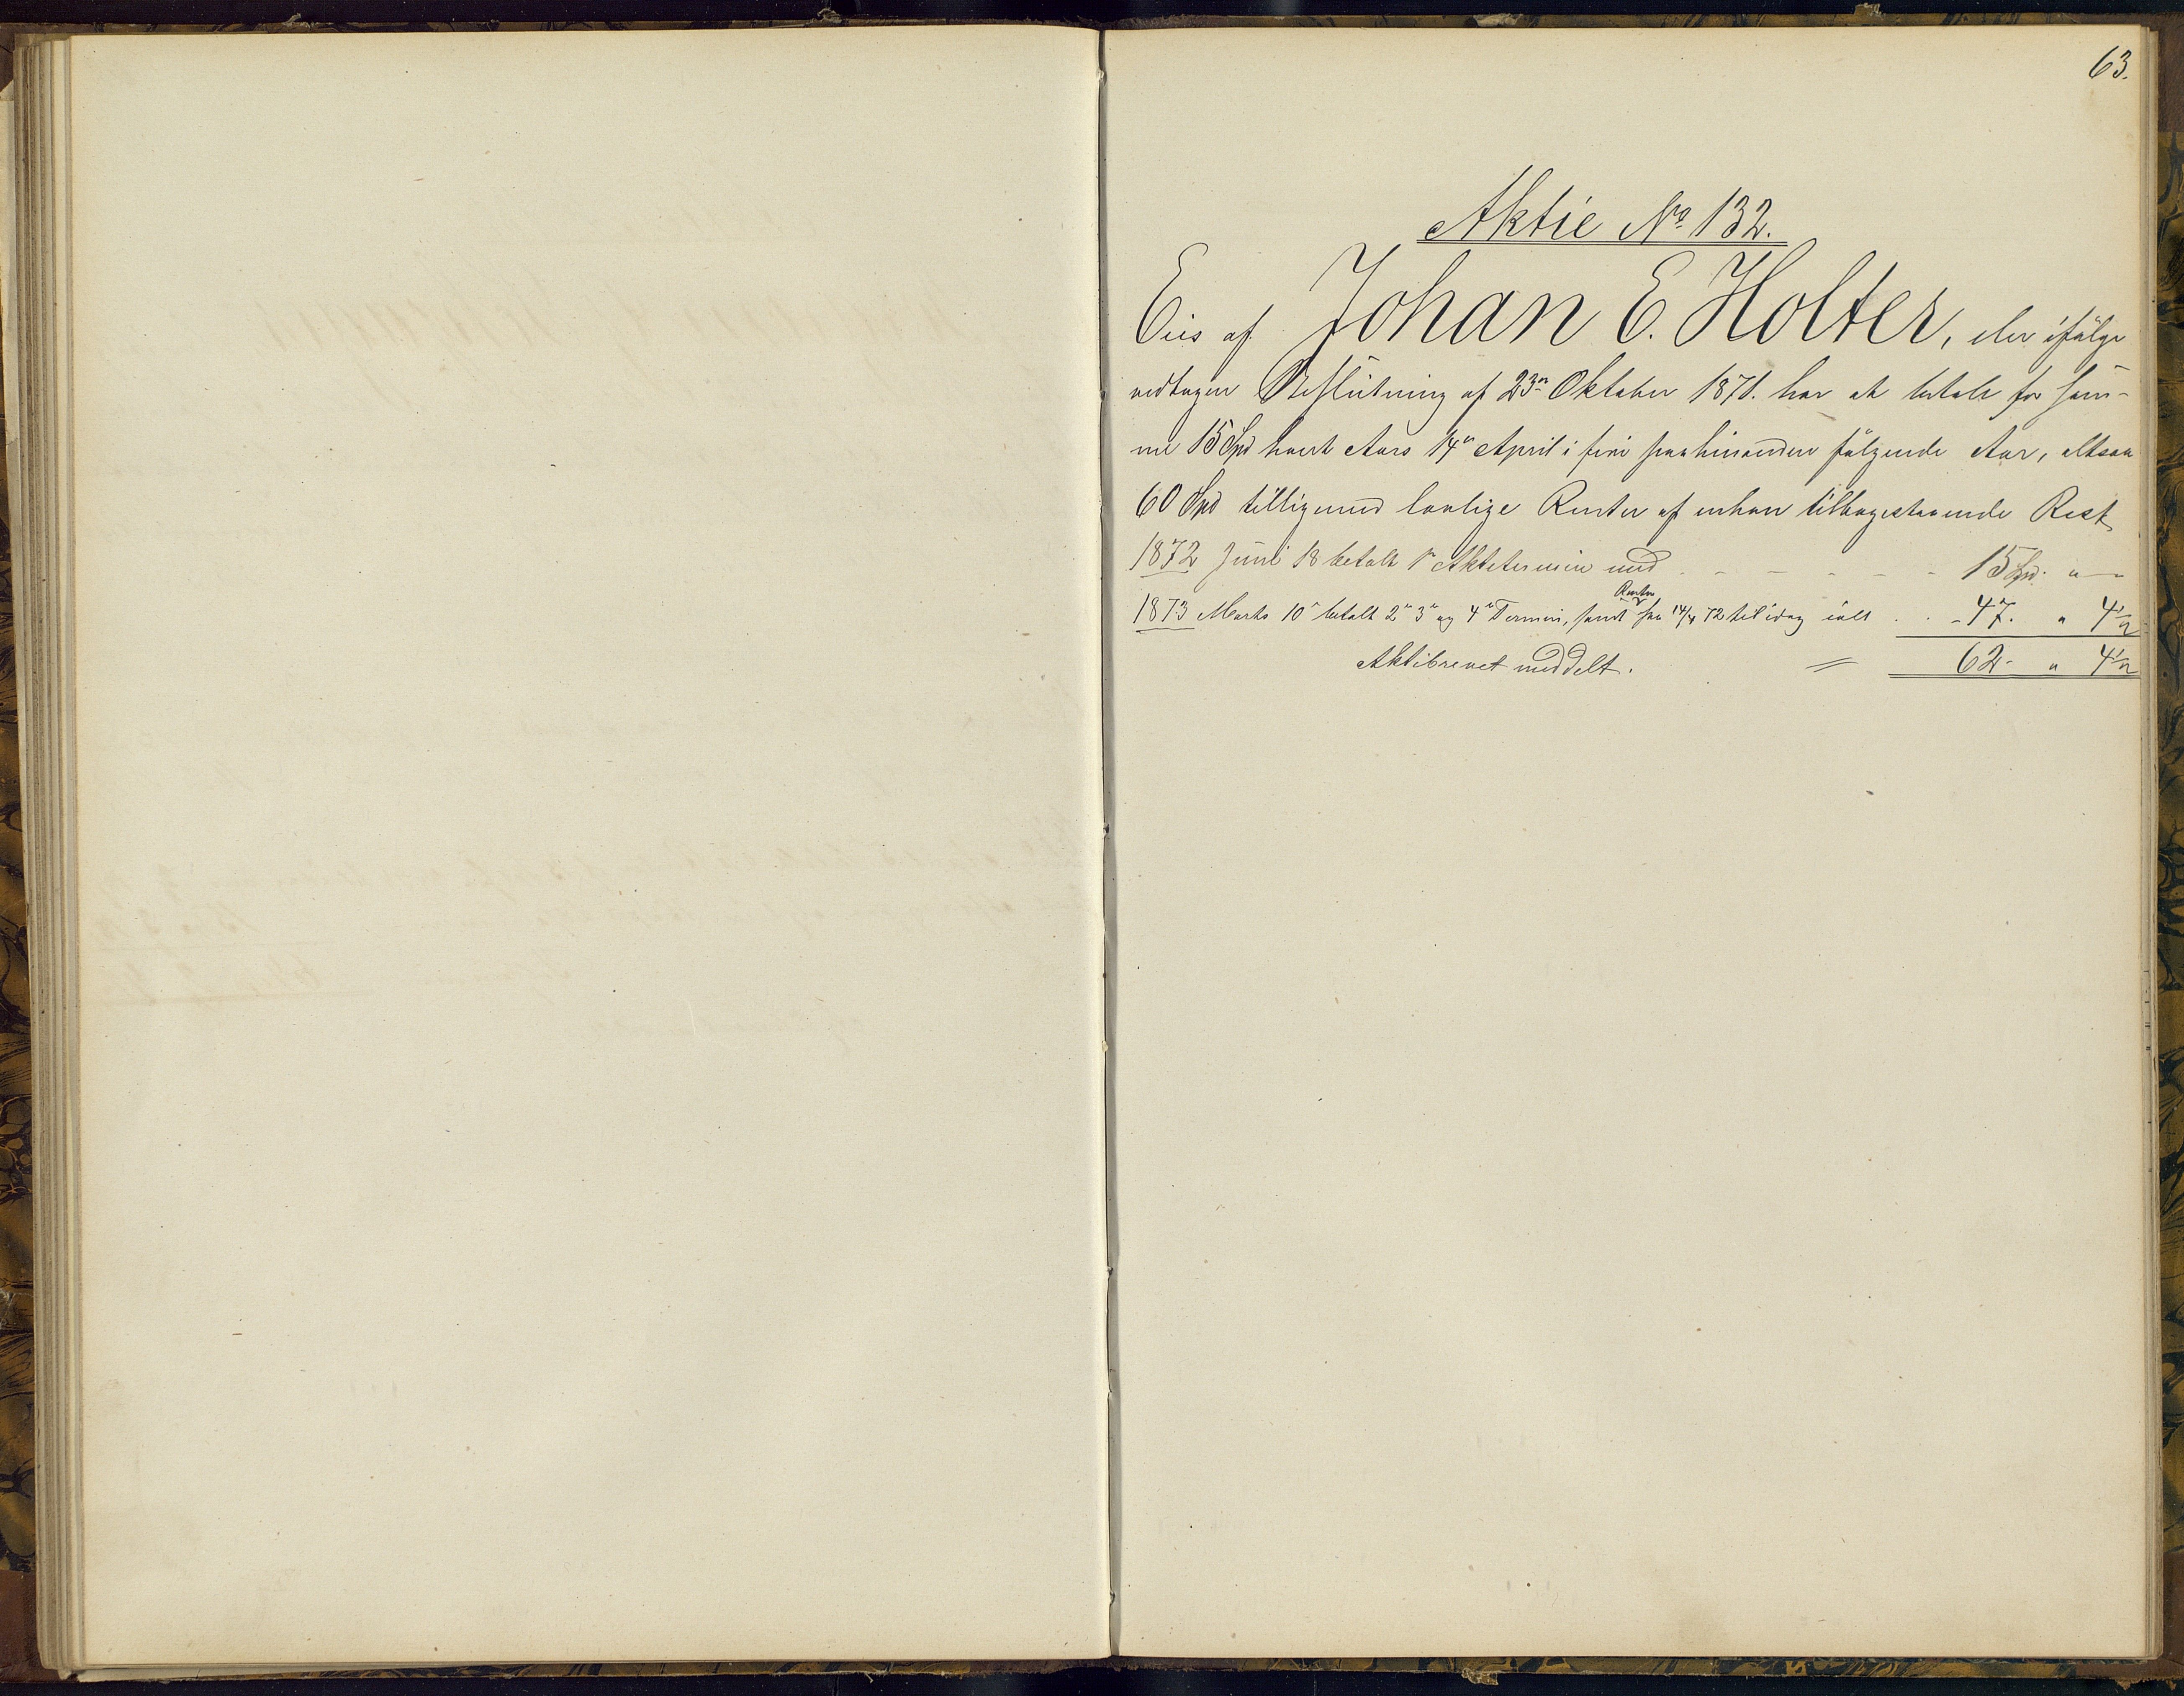 63.
Aktie No 132.
Eies af Johan E. Holter, der ifølge
vedtagen Beslutning af 23de Oktober 1871. har at betale for sam-
me 15 Spd hvert Aars 14de April i fire paahinanden følgende Aar, altsaa
60 Spd tilligemed lovlige Renter af enhver tilbagestaaende Rest
1872 Juni 18 betalt 1ste Aktietermin med - - - - - - 15 Spd. " -
Renter
1873 Marts 10de betalt 2den 3die og 4de Termin, samt fra 14/4 72 til idag ialt . . - 47. " 4½
Aktiebrevet meddelt. = 62 - " 4½